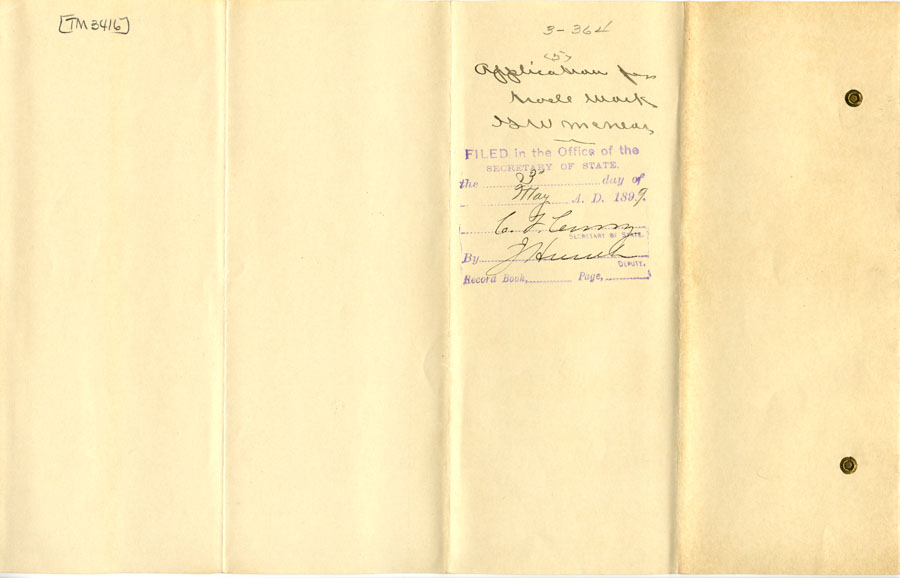 [TM 3416]
3-364
(5)
Application for
Trade Mark
G W McNear
FILED in the Office of the
SECRETARY OF STATE.
the 23 day of
May A. D. 1899.
C. F. Curry
SECRETARY OF STATE.
By J Hoesch
DEPUTY.
Record Book, Page,